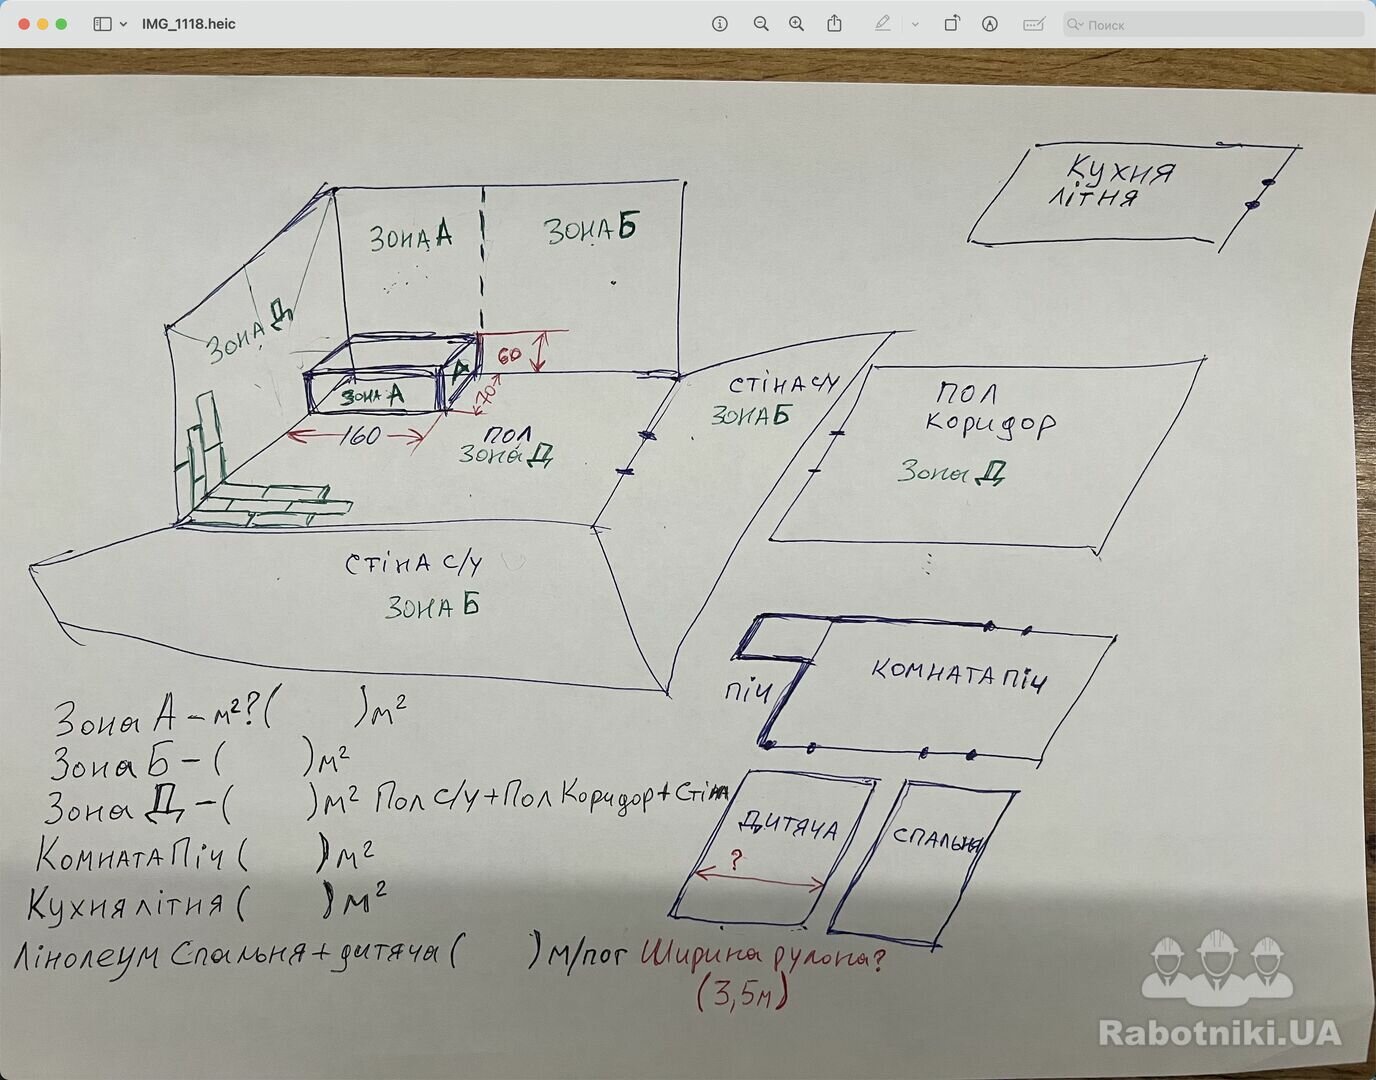 IMG_1118.heic
Поиск
Кухня
літня
Зона А
Зона Б
Зона Д
60
А
Зона А
70
160
Пол
Зона Д
Стіна с/у
Зона Б
Пол
Коридор
Зона Д
Стіна с/у
Зона Б
Комната Піч
Піч
Зона А - м²? ( ) м²
Зона Б - ( ) м²
Зона Д - ( ) м² Пол с/у + Пол Коридор + Стіна
Комната Піч ( ) м²
Кухня літня ( ) м²
Дитяча
?
Спальня
Лінолеум Спальня + дитяча ( ) м/пог Ширина рулона?
(3,5м)
Rabotniki.UA